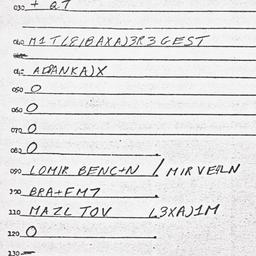 030 + QT
040 M1T(8/BAXA)3R3GEST
042 A(PANKA)X
050 O
060 O
070 O
080 O
090 LOMIR BENC+N / MIR VELN
100 BRA+FM7
110 MAZL TOV (3XA)1M
120 O
130